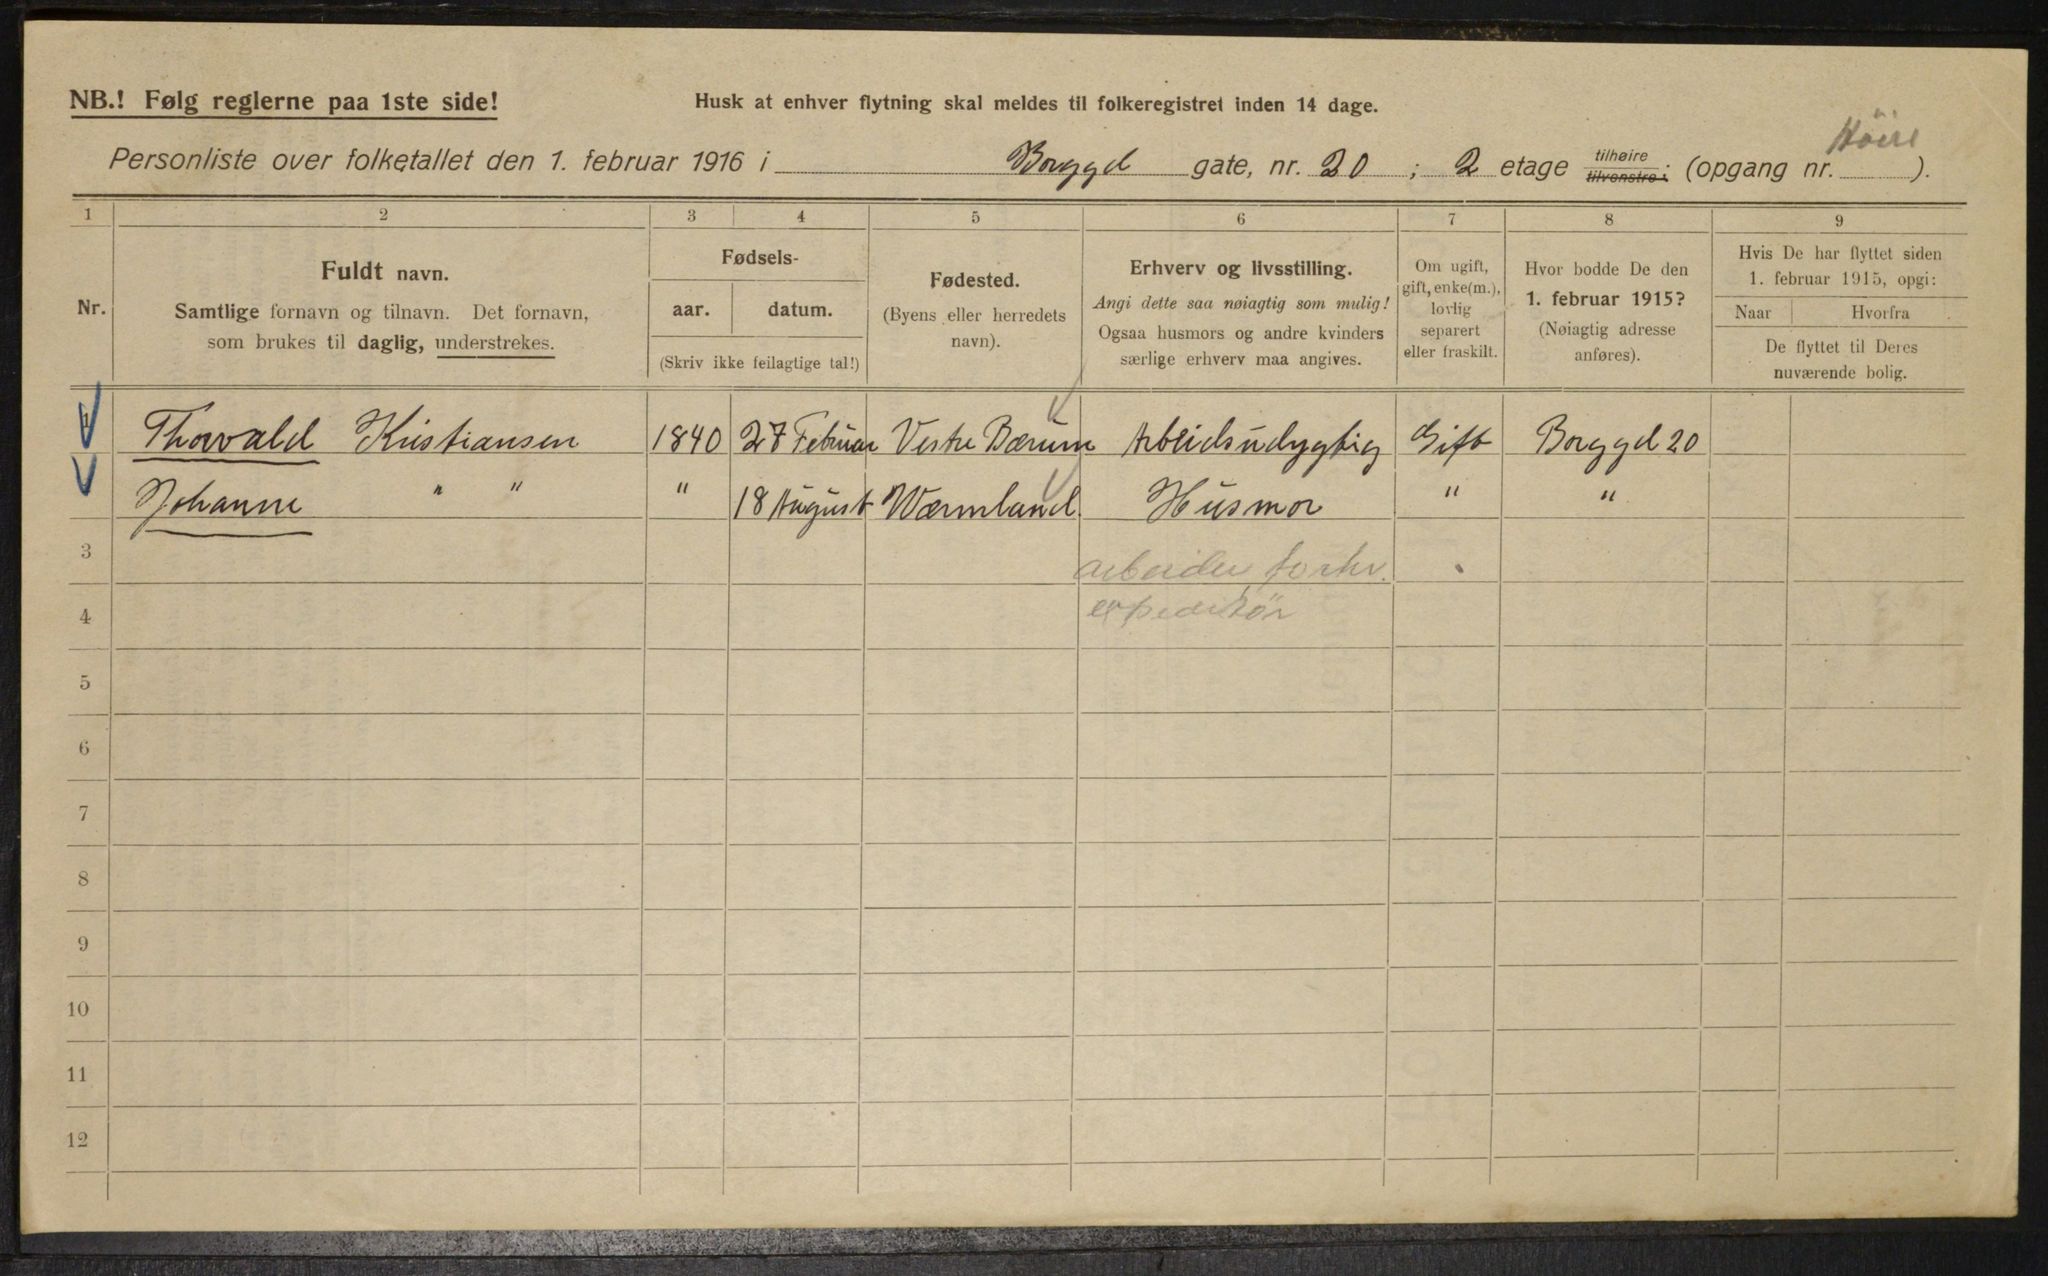 NB.! Følg reglerne paa 1ste side!
Husk at enhver flytning skal meldes til folkeregistret inden 14 dage.
Høire
Personliste over folketallet den 1. februar 1916 i Borggd gate, nr. 20 ; 2 etage tilhøire tilvenstre ; (opgang nr. ).
1 2 3 4 5 6 7 8 9
Nr.
Fuldt navn.
Samtlige fornavn og tilnavn. Det fornavn,
som brukes til daglig, understrekes.
Fødsels-
aar. datum.
(Skriv ikke feilagtige tal!)
Fødested.
(Byens eller herredets
navn).
Erhverv og livsstilling.
Angi dette saa nøiagtig som mulig!
Ogsaa husmors og andre kvinders
særlige erhverv maa angives.
Om ugift,
gift, enke(m.),
lovlig
separert
eller fraskilt.
Hvor bodde De den
1. februar 1915?
(Nøiagtig adresse
anføres).
Hvis De har flyttet siden
1. februar 1915, opgi:
Naar Hvorfra
De flyttet til Deres
nuværende bolig.
Thorvald Kristiansen 1840 27 Februar Vestre Bærum Arbeidsudygtig Gift Borggd 20
Johanne " " " 18 August Wærmland Husmor " "
3 arbeider forhv.
4 expeditør
5
6
7
8
9
10
11
12